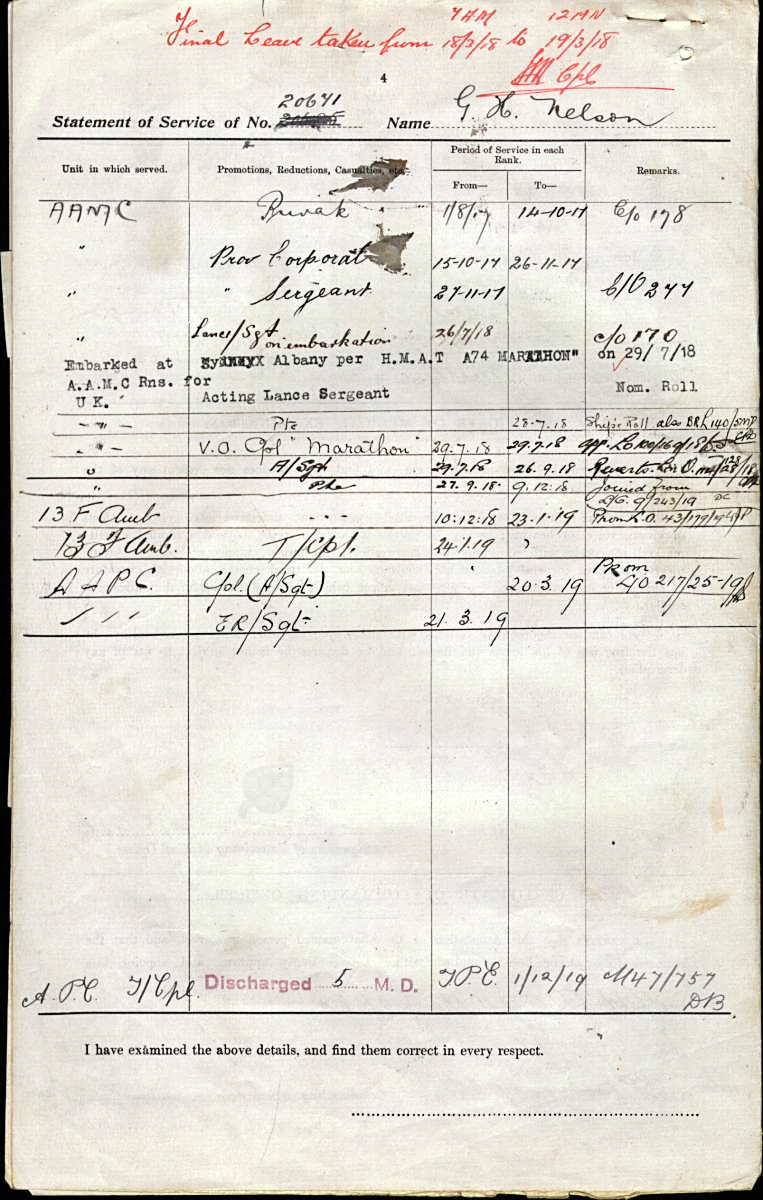 7 AM 12 MN
Final Leave taken from 18/3/18 to 19/3/18
Cpl
4
20671
Statement of Service of No. Name G. H. Nelson
Unit in which served. Promotions, Reductions, Casualties, etc. Period of Service in each Rank. Remarks.
From— To—
A A M C Private 1/8/17 14-10-17 C/o 178
" Prov Corporal 15-10-17 26-11-17
" " Sergeant 27-11-17 C/O 277
" Lance/Sgt on embarkation 26/7/18 c/o 170
Embarked at Albany per H.M.A.T A74 MARATHON" on 29/7/18
A.A.M.C Rns. for
UK. Acting Lance Sergeant Nom. Roll
- " - Pte 28-7-18 Ships Roll also
- " - V.O. Cpl "Marathon" 29.7.18 29.7.18
" A/Sgt 29.7.18 26.9.18 Reverts
" Pte 27.9.18. 9.12.18. Joined from
243/19
13 F Amb - - - 10:12:18 23.1.19
13 F Amb. T/Cpl. 24.1.19
A A P C. Cpl. (A/Sgt) " 20.3.19 Prom
217/25-19
" " " ER/Sgt 21.3.19
A.P.C. T/Cpl. Discharged 5 M. D. T.P.E. 1/12/19 M47/757
DB
I have examined the above details, and find them correct in every respect.